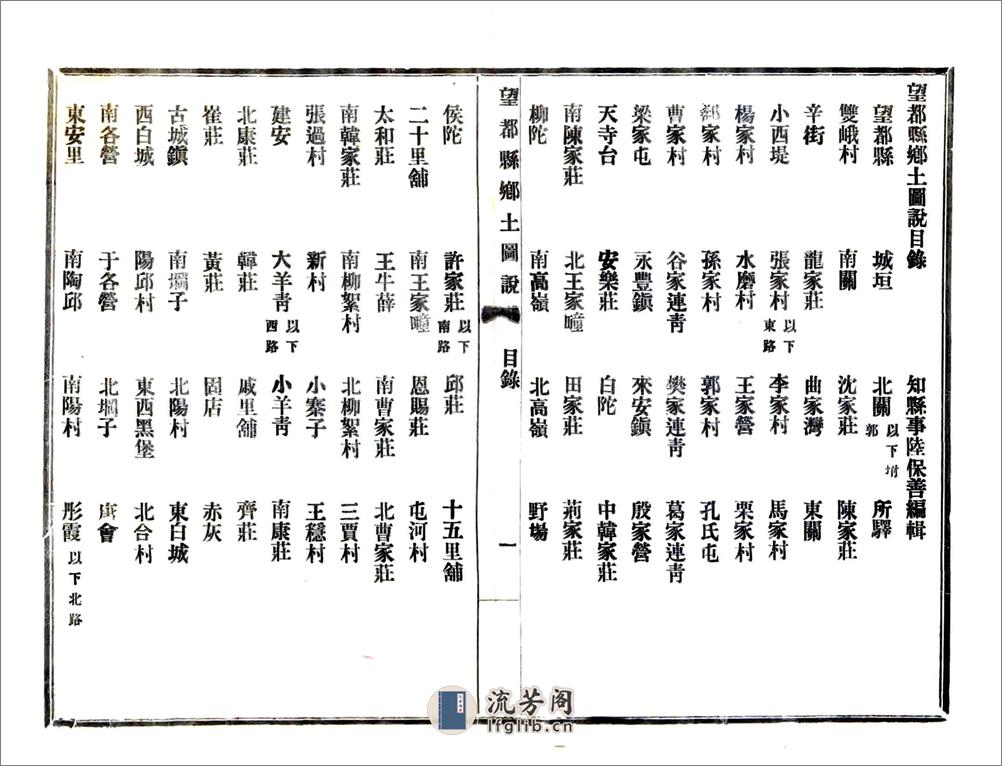 望都縣鄉土圖說目錄
知縣事陸保善編輯
望都縣 城垣 北關以下坿郭 所驛
雙峨村 南關 沈家莊 陳家莊
辛街 龍家莊 曲家灣 東關
小西堤 張家村以下東路 李家村 馬家村
楊家村 水磨村 王家營 栗家村
家村 孫家村 郭家村 孔氏屯
曹家村 谷家連青 樊家連青 葛家連青
梁家屯 永豐鎮 來安鎮 殷家營
天寺台 安樂莊 白陀 中韓家莊
南陳家莊 北王家疃 田家莊 荊家莊
柳陀 南高嶺 北高嶺 野場
望都縣鄉土圖說 目錄 一
侯陀 許家莊以下南路 邱莊 十五里舖
二十里舖 南王家疃 恩賜莊 屯河村
太和莊 王牛薛 南曹家莊 北曹家莊
南韓家莊 南柳絮村 北柳絮村 三賈村
張過村 新村 小寨子 王穩村
建安 大羊青以下西路 小羊青 南康莊
北康莊 韓莊 戚里舖 齊莊
崔莊 黃莊 固店 赤灰
古城鎮 南堨子 北陽村 東白城
西白城 陽邱村 東西黑堡 北合村
南各營 于各營 北堨子 唐會
東安里 南陶邱 南陽村 彤霞以下北路
流芳阁
lfglib.cn